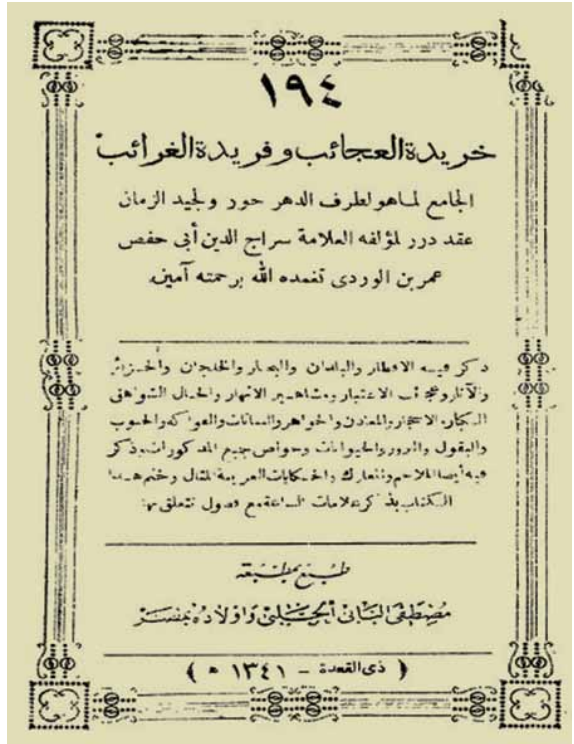 ١٩٤
خريدة العجائب وفريدة الغرائب
الجامع لما هو لطرف الدهر حور ولجيد الزمان
عقد درر لمؤلفه العلامة سراج الدين أبى حفص
عمر بن الوردى تغمده الله برحمته آمين
ذكر فيه الاقطار والبلدان والبحار والخلجان والجزائر
والآثار وعجائب الاعتبار ومشاهير الانهار والجبال الشواهق
الكبار والاحجار والمعادن والجواهر والنباتات والفواكه والحبوب
والبقول والبزور والحيوانات وخواص جميع المذكورات وذكر
فيه أيضا الملاحم والمعارك والحكايات الغريبة المثال وختم هذا
الكتاب بذكر علامات الساعة مع فصول تتعلق بها
طبع بمطبعة
مصطفى البابى الحلبى وأولاده بمصر
( ذى القعدة - ١٣٤١ هـ )